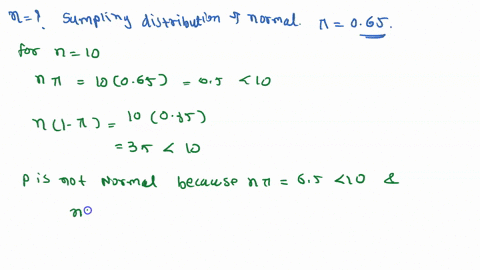 n=?. Sumpling distribution is normal. π = 0.65.
for n = 10
nπ = 10(0.65) = 6.5 < 10
n(1-π) = 10(0.35)
= 35 < 10
p is not normal because nπ = 6.5 < 10 &
n